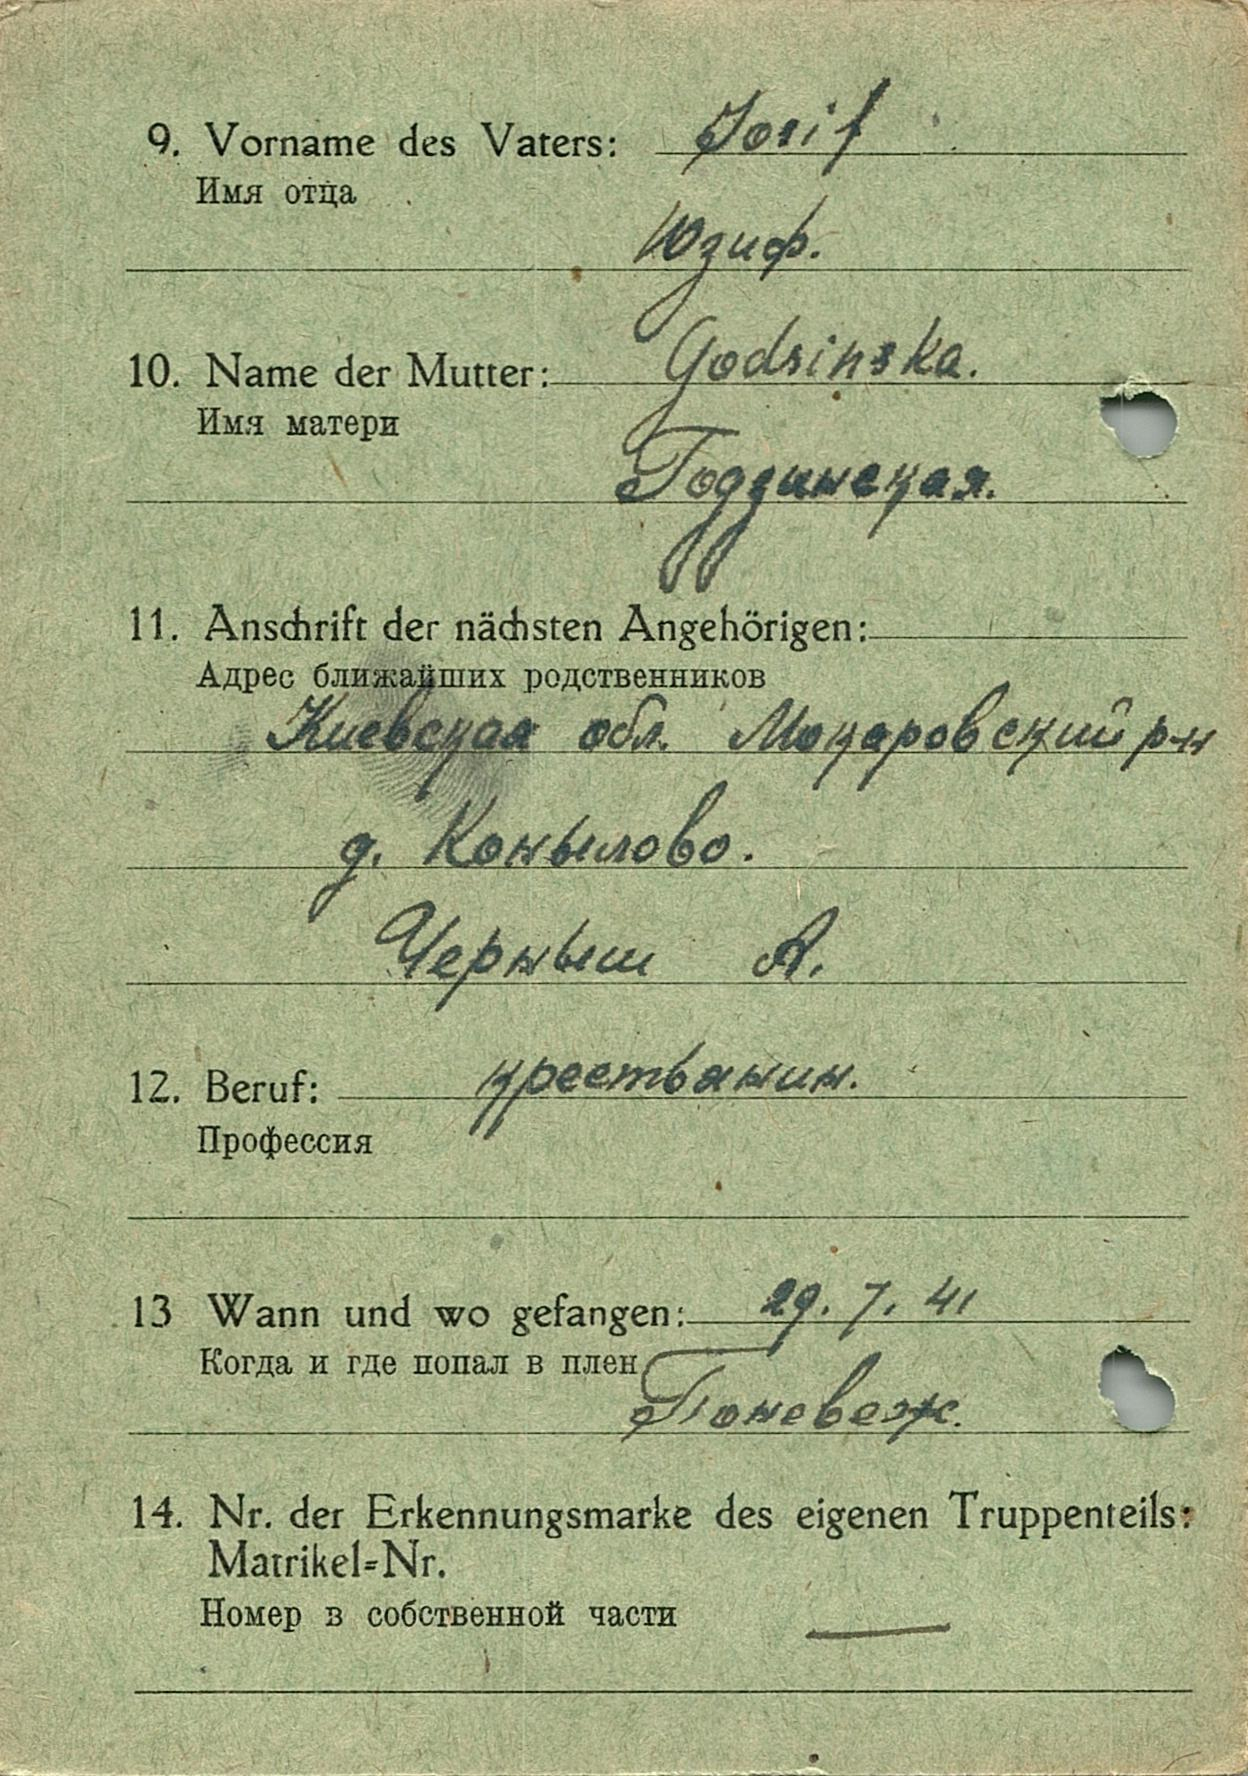 9. Vorname des Vaters: Josif
Имя отца
Юзиф.
10. Name der Mutter: Godsinska.
Имя матери
Годзинская.
11. Anschrift der nächsten Angehörigen:
Адрес ближайших родственников
Киевская обл. Мокаровский р-н
д. Конылово.
Черныш А.
12. Beruf: крестьянин.
Профессия
13 Wann und wo gefangen: 29. 7. 41
Когда и где попал в плен
Поневеж.
14. Nr. der Erkennungsmarke des eigenen Truppenteils:
Matrikel=Nr.
Номер в собственной части —